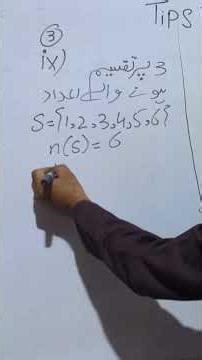 TIPS
③
ix) 3 پر تقسیم
ہونے والے اعداد
S={1,2,3,4,5,6}
n(S)=6